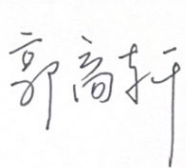 郭高轩